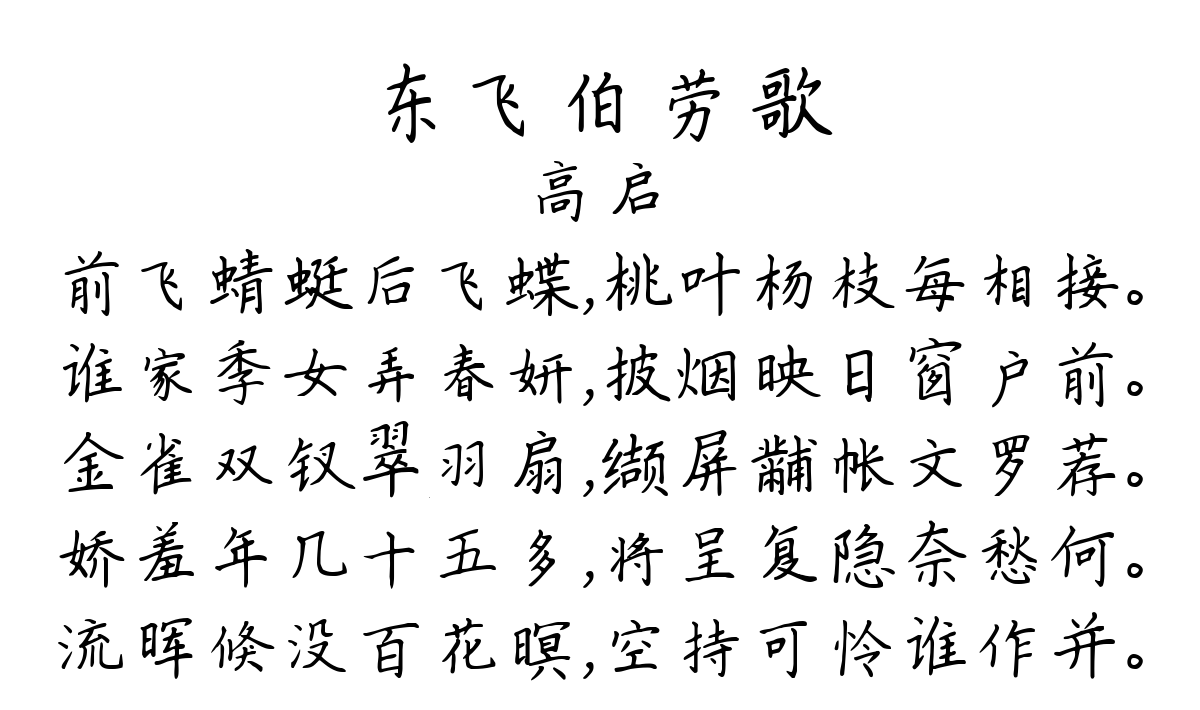 东飞伯劳歌
高启
前飞蜻蜓后飞蝶,桃叶杨枝每相接。
谁家季女弄春妍,披烟映日窗户前。
金雀双钗翠羽扇,缬屏黼帐文罗荐。
娇羞年几十五多,将呈复隐奈愁何。
流晖倏没百花暝,空持可怜谁作并。